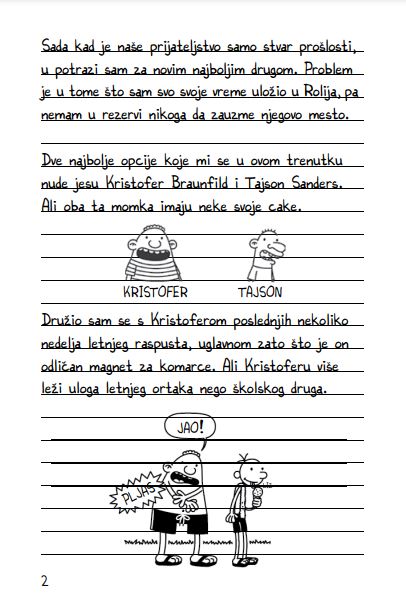 Sada kad je naše prijateljstvo samo stvar prošlosti,
u potrazi sam za novim najboljim drugom. Problem
je u tome što sam svo svoje vreme uložio u Rolija, pa
nemam u rezervi nikoga da zauzme njegovo mesto.
Dve najbolje opcije koje mi se u ovom trenutku
nude jesu Kristofer Braunfild i Tajson Sanders.
Ali oba ta momka imaju neke svoje cake.
KRISTOFER TAJSON
Družio sam se s Kristoferom poslednjih nekoliko
nedelja letnjeg raspusta, uglavnom zato što je on
odličan magnet za komarce. Ali Kristoferu više
leži uloga letnjeg ortaka nego školskog druga.
JAO!
PLJAS
2